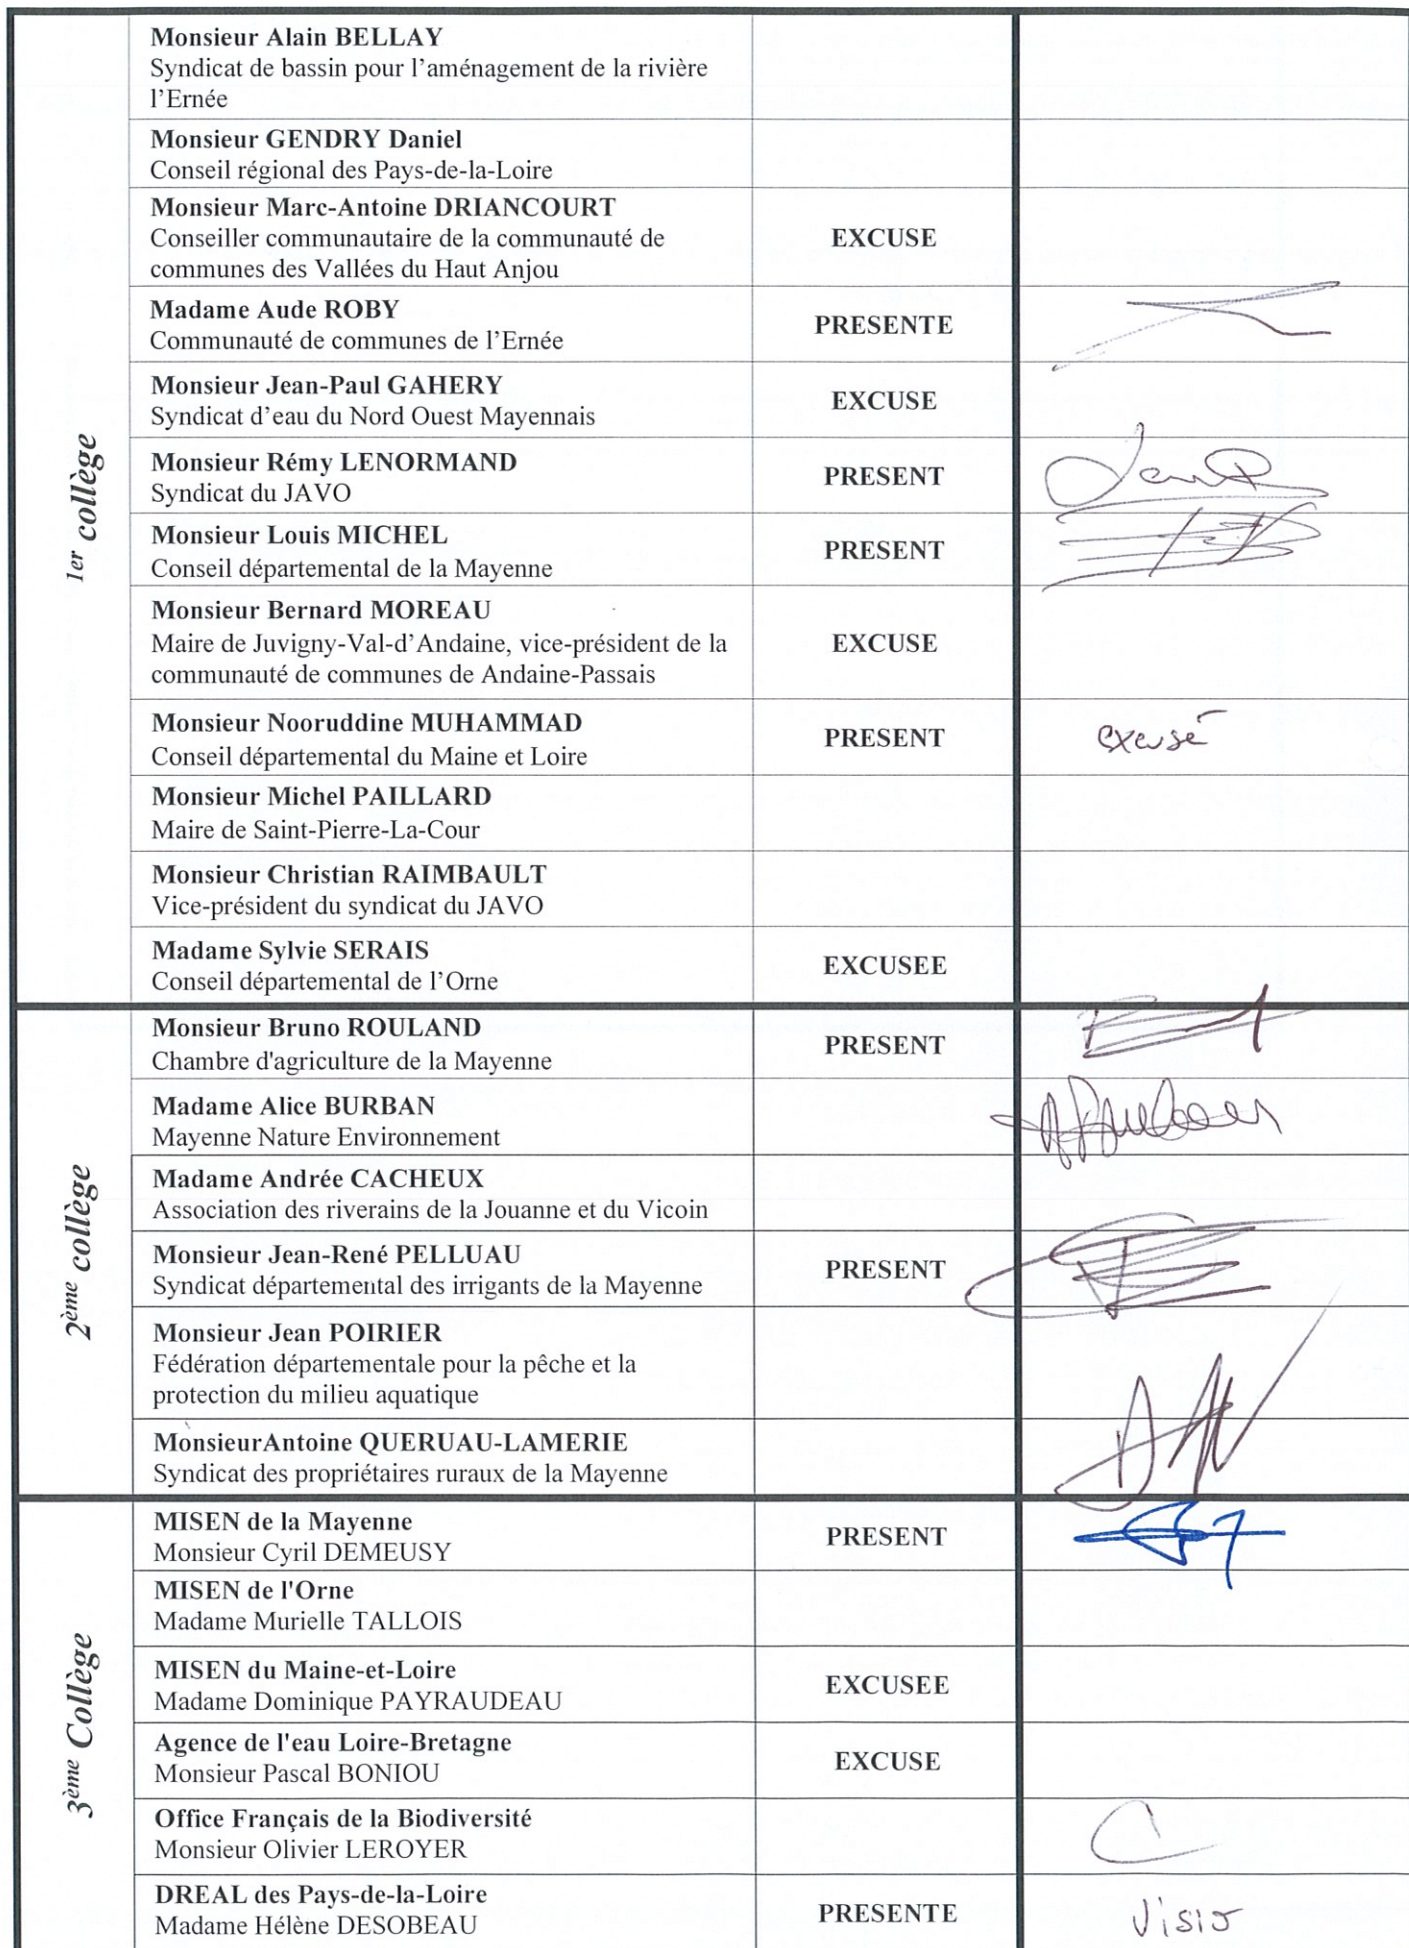 1er collège
Monsieur Alain BELLAY
Syndicat de bassin pour l'aménagement de la rivière
l'Ernée
Monsieur GENDRY Daniel
Conseil régional des Pays-de-la-Loire
Monsieur Marc-Antoine DRIANCOURT
Conseiller communautaire de la communauté de
communes des Vallées du Haut Anjou
EXCUSE
Madame Aude ROBY
Communauté de communes de l'Ernée
PRESENTE
Monsieur Jean-Paul GAHERY
Syndicat d'eau du Nord Ouest Mayennais
EXCUSE
Monsieur Rémy LENORMAND
Syndicat du JAVO
PRESENT
Monsieur Louis MICHEL
Conseil départemental de la Mayenne
PRESENT
Monsieur Bernard MOREAU
Maire de Juvigny-Val-d'Andaine, vice-président de la
communauté de communes de Andaine-Passais
EXCUSE
Monsieur Nooruddine MUHAMMAD
Conseil départemental du Maine et Loire
PRESENT
excusé
Monsieur Michel PAILLARD
Maire de Saint-Pierre-La-Cour
Monsieur Christian RAIMBAULT
Vice-président du syndicat du JAVO
Madame Sylvie SERAIS
Conseil départemental de l'Orne
EXCUSEE
2ème collège
Monsieur Bruno ROULAND
Chambre d'agriculture de la Mayenne
PRESENT
Madame Alice BURBAN
Mayenne Nature Environnement
Madame Andrée CACHEUX
Association des riverains de la Jouanne et du Vicoin
Monsieur Jean-René PELLUAU
Syndicat départemental des irrigants de la Mayenne
PRESENT
Monsieur Jean POIRIER
Fédération départementale pour la pêche et la
protection du milieu aquatique
MonsieurAntoine QUERUAU-LAMERIE
Syndicat des propriétaires ruraux de la Mayenne
3ème Collège
MISEN de la Mayenne
Monsieur Cyril DEMEUSY
PRESENT
MISEN de l'Orne
Madame Murielle TALLOIS
MISEN du Maine-et-Loire
Madame Dominique PAYRAUDEAU
EXCUSEE
Agence de l'eau Loire-Bretagne
Monsieur Pascal BONIOU
EXCUSE
Office Français de la Biodiversité
Monsieur Olivier LEROYER
DREAL des Pays-de-la-Loire
Madame Hélène DESOBEAU
PRESENTE
Visio